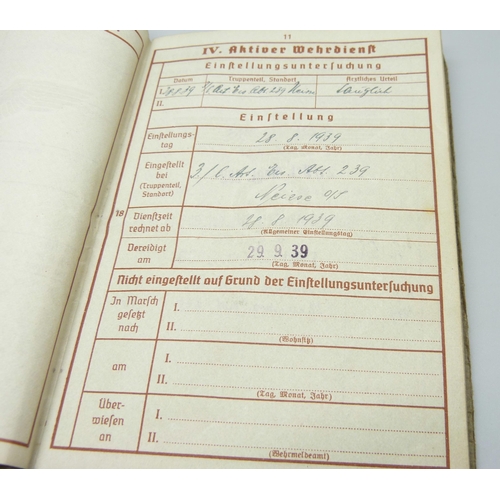 11
IV. Aktiver Wehrdienst
Einstellungsuntersuchung
Datum Truppenteil, Standort Ärztliches Urteil
I. Art. Ers. Abt. 239 Tauglich
II.
Einstellung
Einstellungs-
tag 28. 8. 1939
(Tag, Monat, Jahr)
Eingestellt
bei 3/ Art. Ers. Abt. 239
(Truppenteil,
Standort) Neisse O/S
18 Dienstzeit
rechnet ab 28. 8. 1939
(Allgemeiner Einstellungstag)
Vereidigt
am 29. 9. 39
(Tag, Monat, Jahr)
Nicht eingestellt auf Grund der Einstellungsuntersuchung
In Marsch
gesetzt
nach
I.
II.
(Wohnsitz)
am
I.
II.
(Tag, Monat, Jahr)
Über-
wiesen
an
I.
II.
(Wehrmeldeamt)